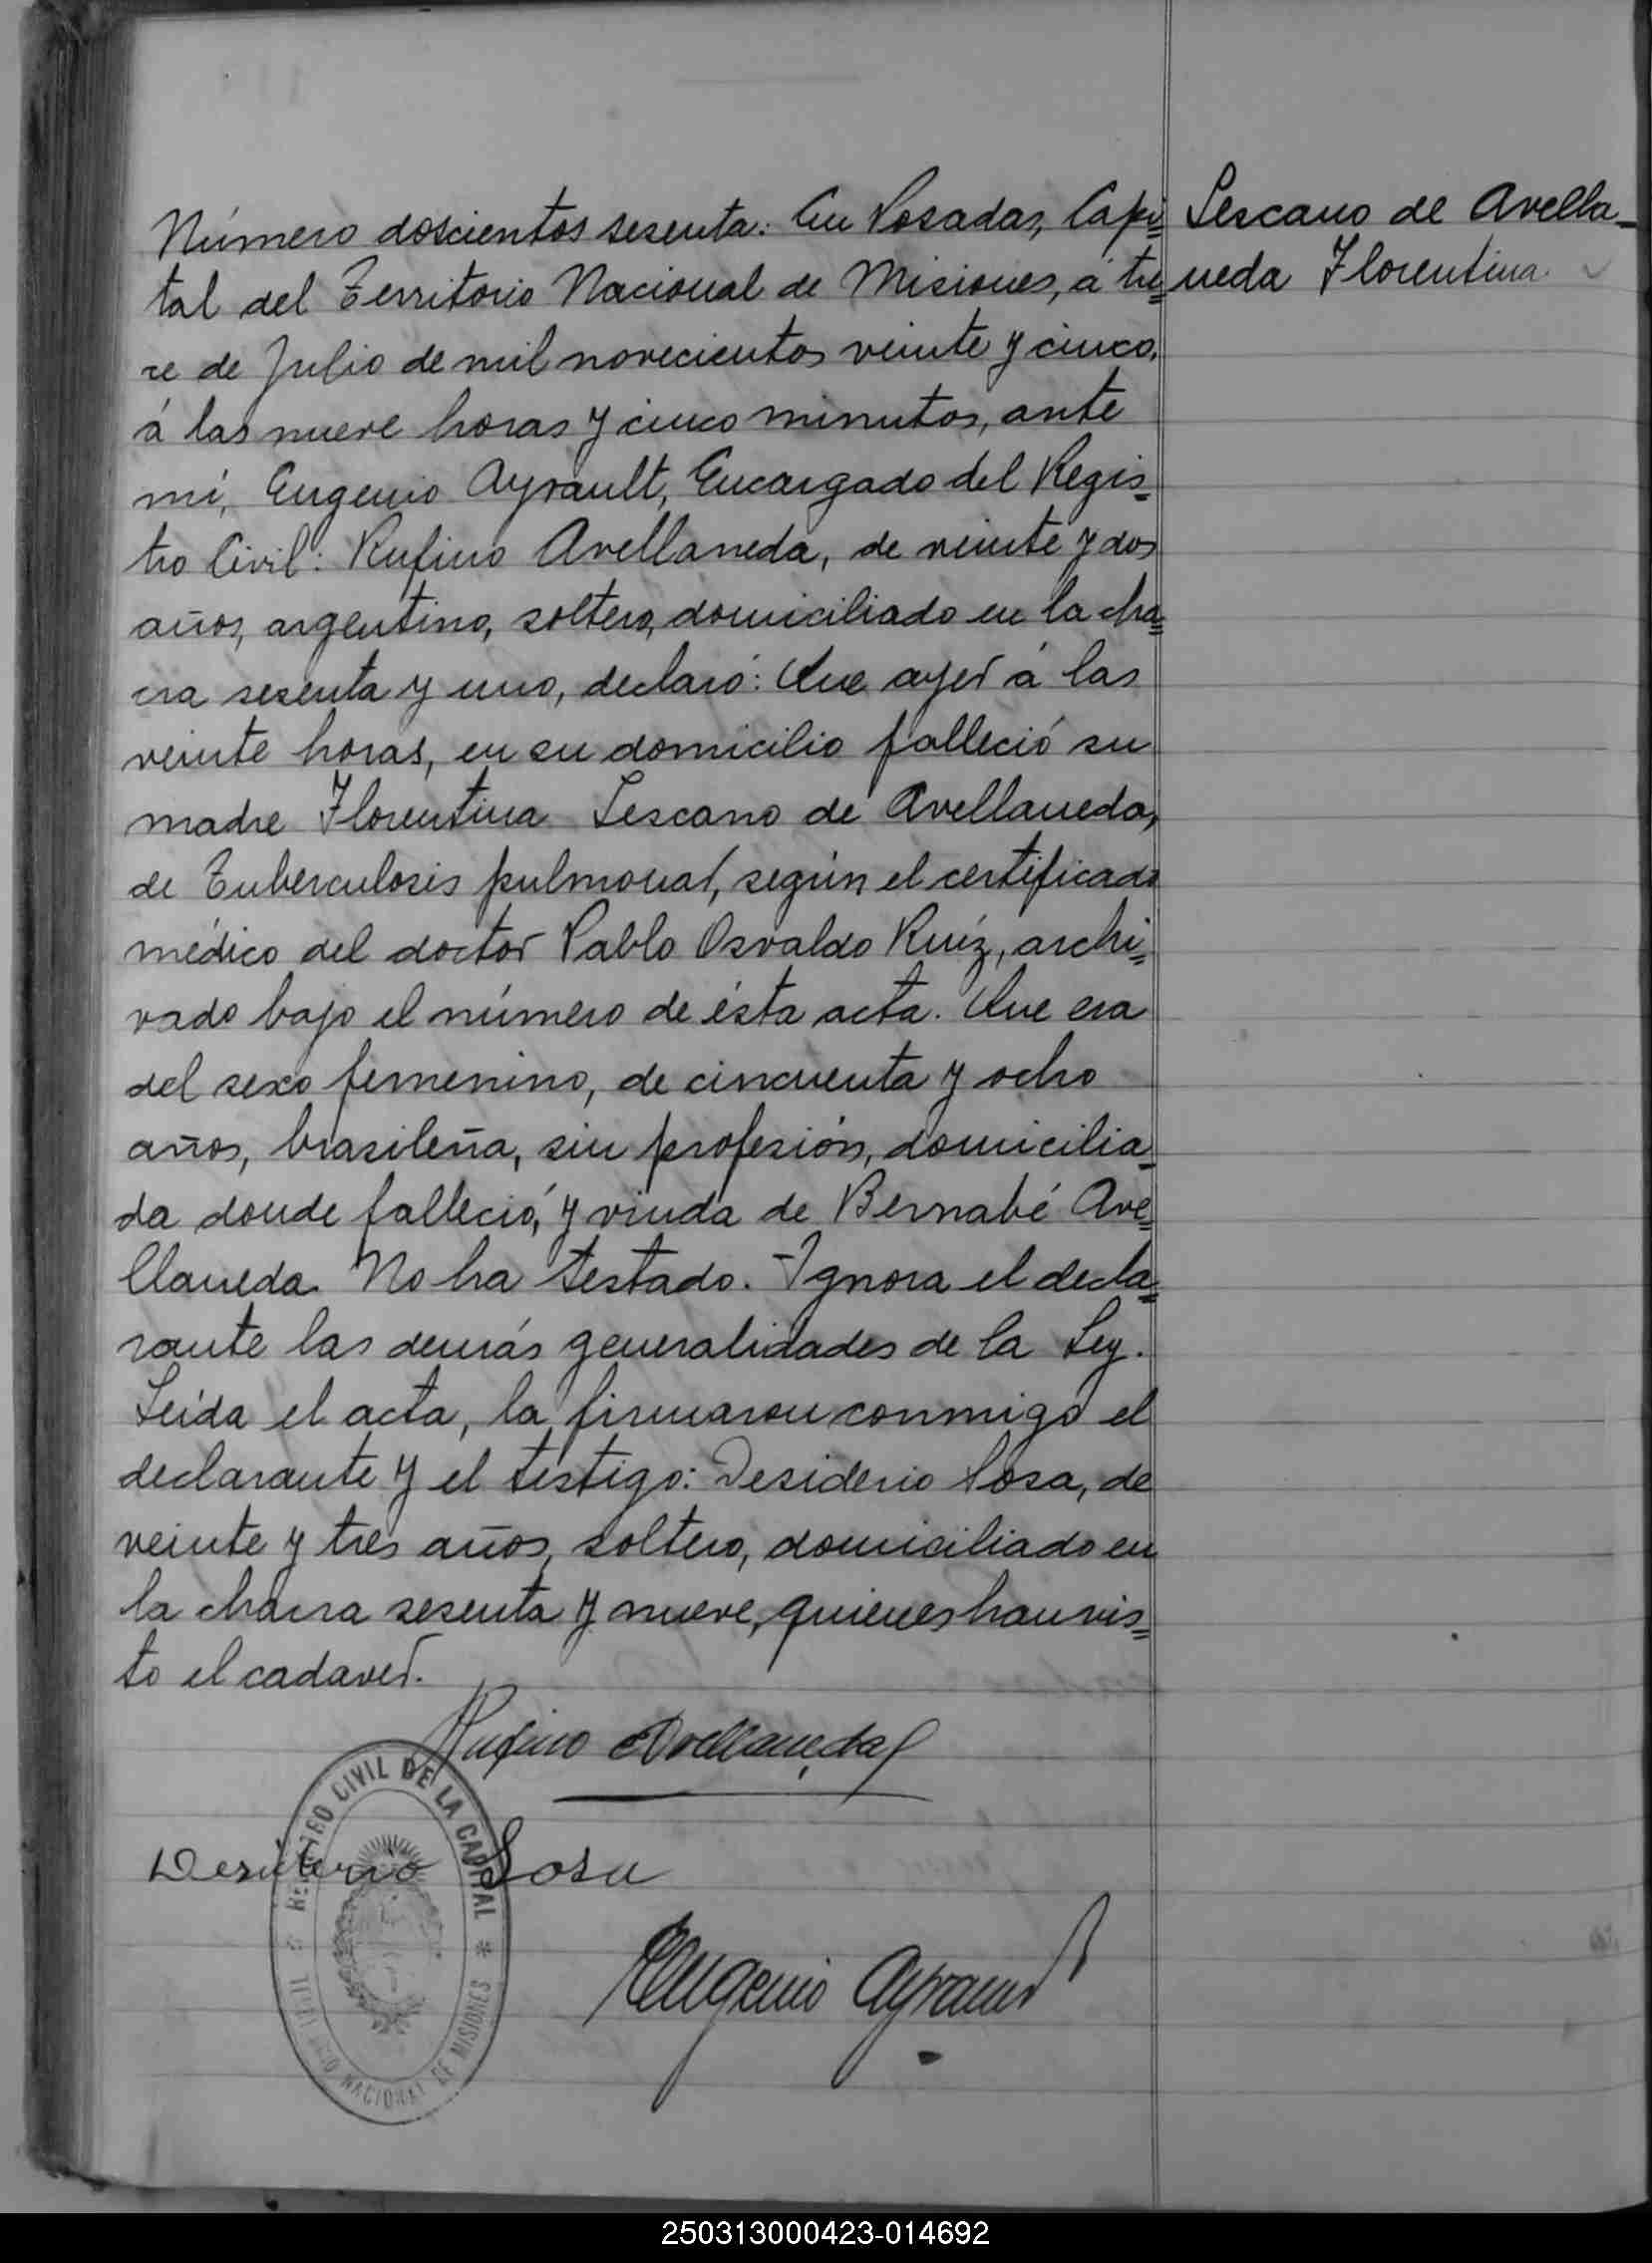 Número doscientos sesenta: En Posadas, Capi=
tal del Territorio Nacional de Misiones, á tre=
ce de Julio de mil novecientos veinte y cinco,
á las nueve horas y cinco minutos, ante
mí, Eugenio Ayrault, Encargado del Regis=
tro Civil: Rufino Avellaneda, de veinte y dos
años, argentino, soltero, domiciliado en la cha=
cra sesenta y uno, declaró: Que ayer á las
veinte horas, en su domicilio falleció su
madre Florentina Lescano de Avellaneda,
de Tuberculosis pulmonar, según el certificado
médico del doctor Pablo Osvaldo Ruíz, archi=
vado bajo el número de ésta acta. Que era
del sexo femenino, de cincuenta y ocho
años, brasileña, sin profesión, domicilia=
da donde falleció, y viuda de Bernabé Ave=
llaneda. No ha testado. Ignora el decla=
rante las demás generalidades de la Ley.
Leída el acta, la firmaron conmigo el
declarante y el testigo: Desiderio Sosa, de
veinte y tres años, soltero, domiciliado en
la chacra sesenta y nueve, quienes han vis=
to el cadaver.
Lescano de Avella=
neda Florentina
Rufino Avellaneda
Desiderio Sosa
Eugenio Ayrault
REGISTRO CIVIL DE LA CAPITAL
TERRITORIO NACIONAL DE MISIONES
250313000423-014692